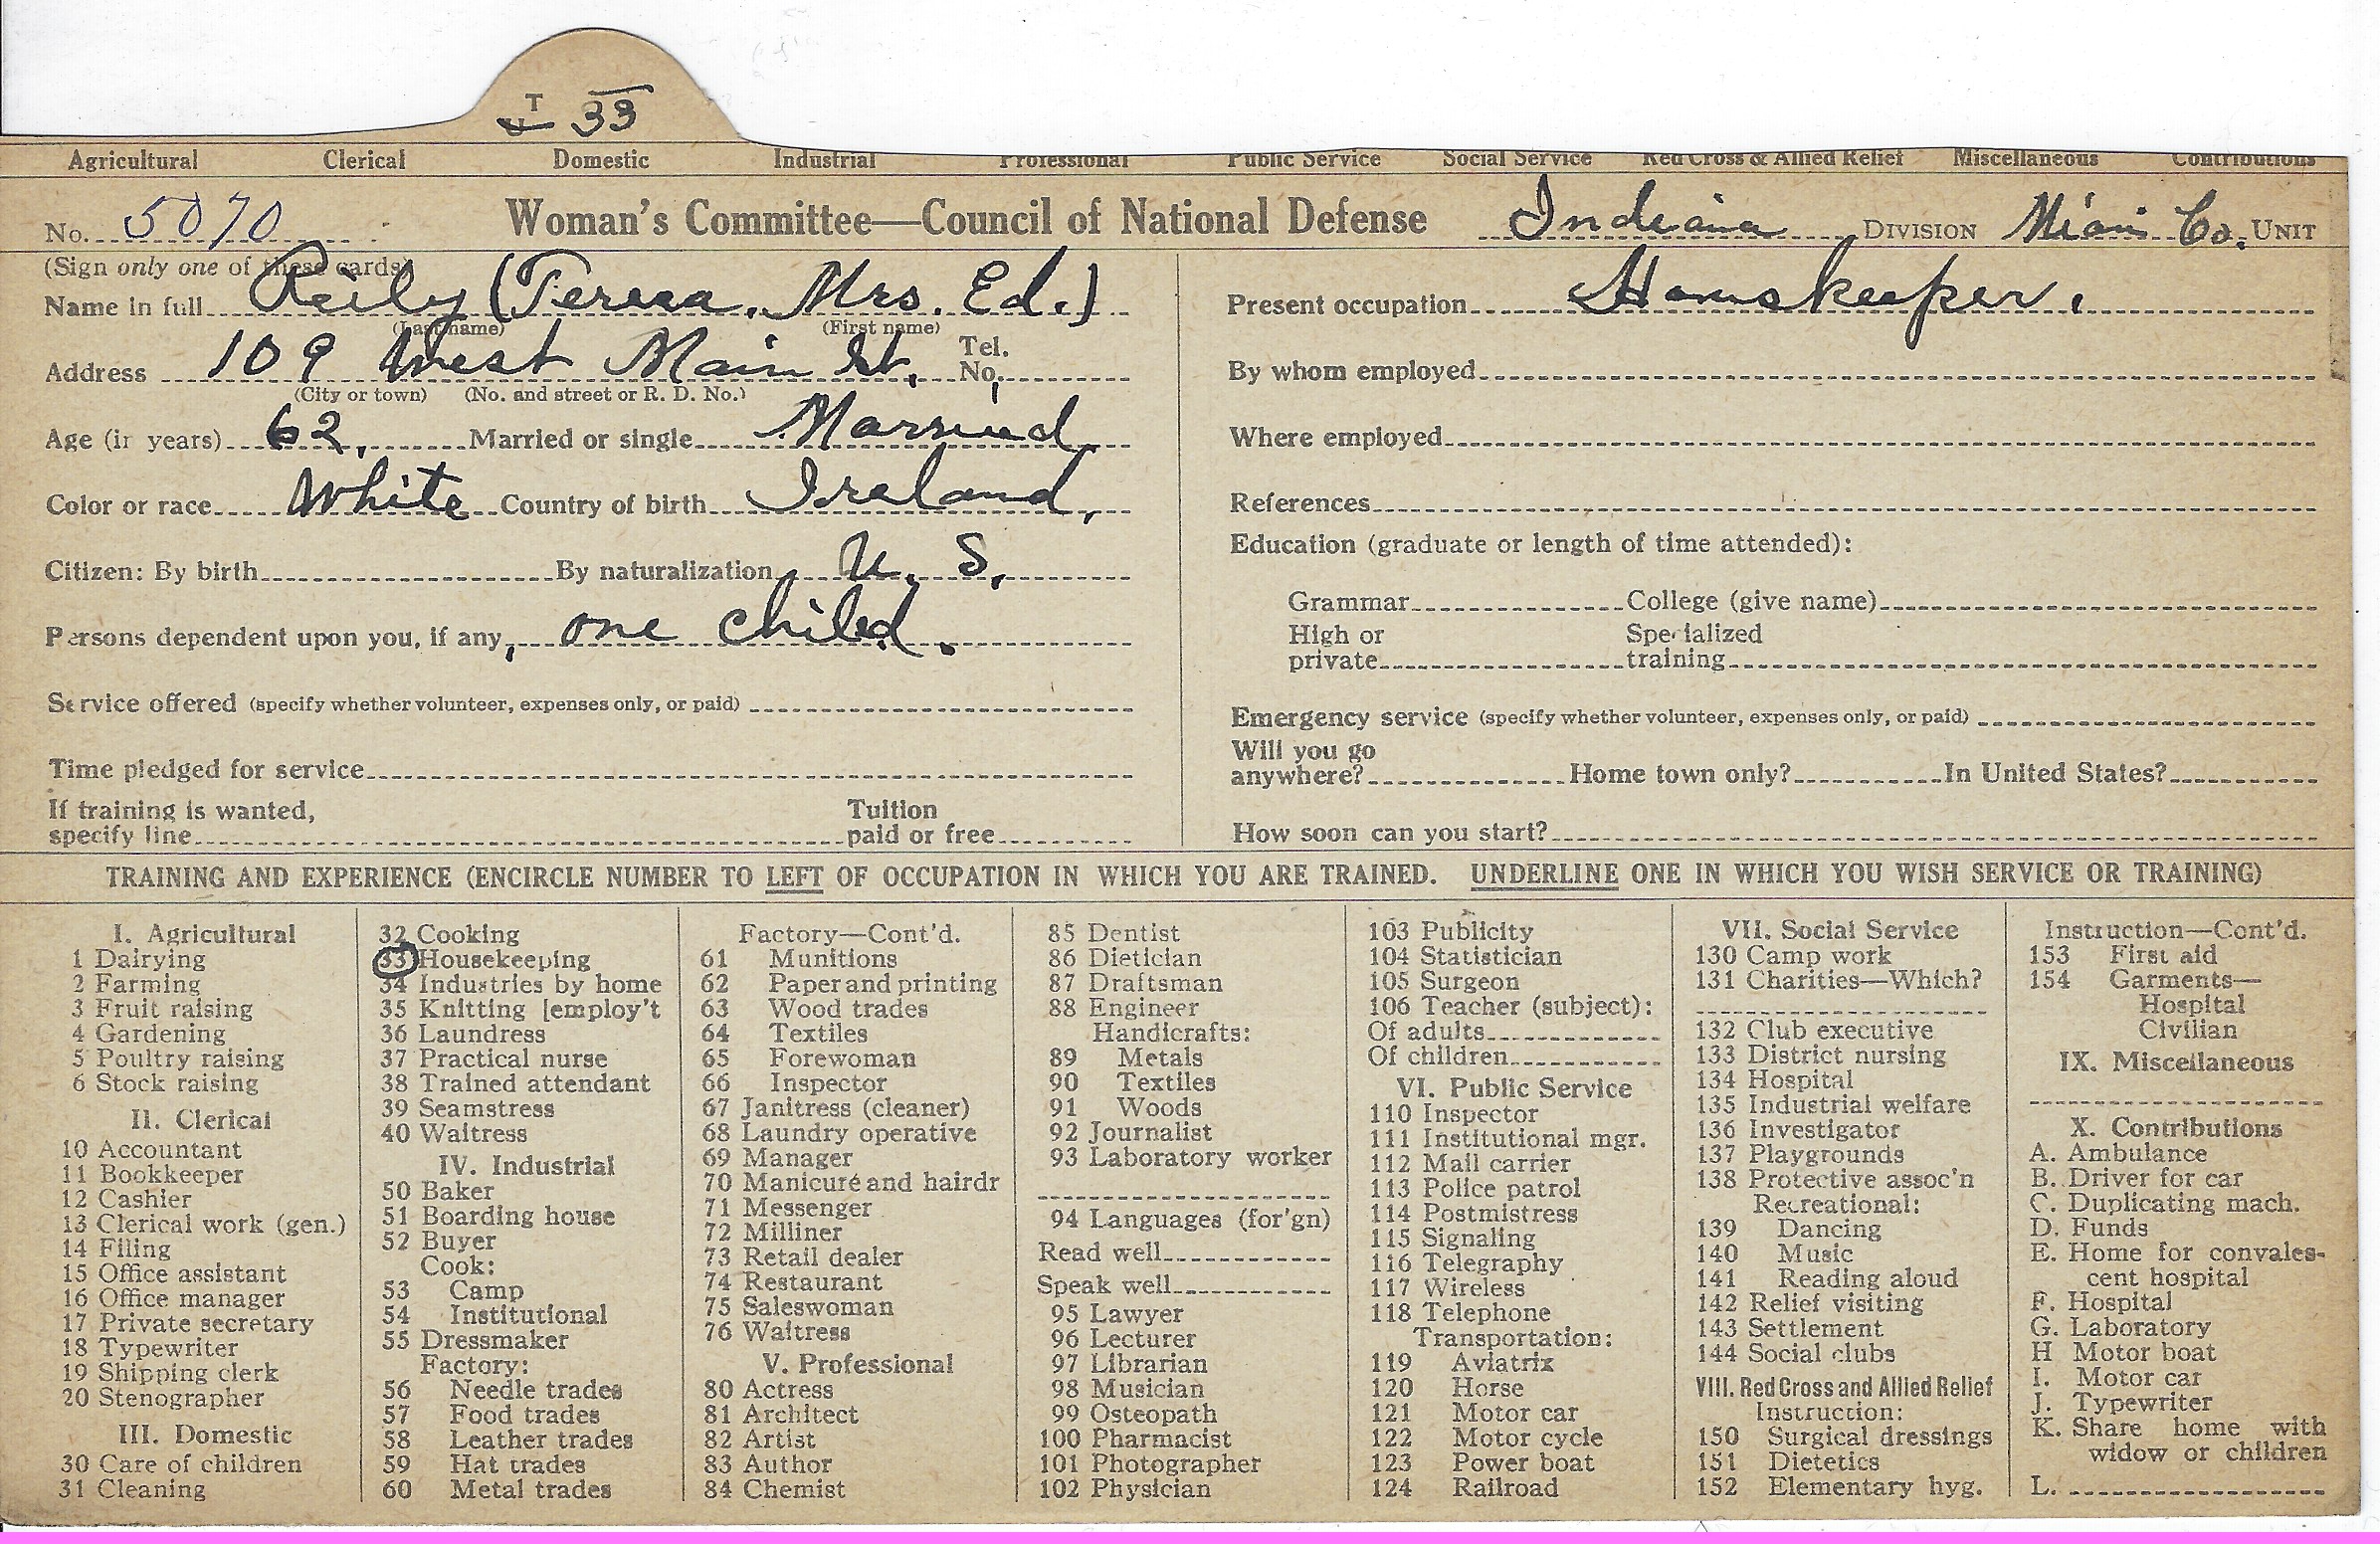 T
33
Agricultural Clerical Domestic Industrial Professional Public Service Social Service Red Cross & Allied Relief Miscellaneous Contributions
No. 5070 Woman's Committee—Council of National Defense Indiana DIVISION Miami Co. UNIT
(Sign only one of these cards)
Name in full Reily (Teresa, Mrs. Ed.)
(Last name) (First name)
Address 109 West Main St, Tel. No.
(City or town) (No. and street or R. D. No.)
Age (in years) 62, Married or single Married
Color or race White Country of birth Ireland,
Citizen: By birth By naturalization U. S.
Persons dependent upon you, if any, one child.
Service offered (specify whether volunteer, expenses only, or paid)
Time pledged for service
If training is wanted,
specify line
Tuition
paid or free
Present occupation Homskeeper.
By whom employed
Where employed
References
Education (graduate or length of time attended):
Grammar College (give name)
High or
private
Specialized
training
Emergency service (specify whether volunteer, expenses only, or paid)
Will you go
anywhere? Home town only? In United States?
How soon can you start?
TRAINING AND EXPERIENCE (ENCIRCLE NUMBER TO LEFT OF OCCUPATION IN WHICH YOU ARE TRAINED. UNDERLINE ONE IN WHICH YOU WISH SERVICE OR TRAINING)
I. Agricultural
1 Dairying
2 Farming
3 Fruit raising
4 Gardening
5 Poultry raising
6 Stock raising
II. Clerical
10 Accountant
11 Bookkeeper
12 Cashier
13 Clerical work (gen.)
14 Filing
15 Office assistant
16 Office manager
17 Private secretary
18 Typewriter
19 Shipping clerk
20 Stenographer
III. Domestic
30 Care of children
31 Cleaning
32 Cooking
33 Housekeeping
34 Industries by home
35 Knitting [employ't
36 Laundress
37 Practical nurse
38 Trained attendant
39 Seamstress
40 Waitress
IV. Industrial
50 Baker
51 Boarding house
52 Buyer
Cook:
53 Camp
54 Institutional
55 Dressmaker
Factory:
56 Needle trades
57 Food trades
58 Leather trades
59 Hat trades
60 Metal trades
Factory—Cont'd.
61 Munitions
62 Paper and printing
63 Wood trades
64 Textiles
65 Forewoman
66 Inspector
67 Janitress (cleaner)
68 Laundry operative
69 Manager
70 Manicure and hairdr
71 Messenger
72 Milliner
73 Retail dealer
74 Restaurant
75 Saleswoman
76 Waitress
V. Professional
80 Actress
81 Architect
82 Artist
83 Author
84 Chemist
85 Dentist
86 Dietician
87 Draftsman
88 Engineer
Handicrafts:
89 Metals
90 Textiles
91 Woods
92 Journalist
93 Laboratory worker
94 Languages (for'gn)
Read well
Speak well
95 Lawyer
96 Lecturer
97 Librarian
98 Musician
99 Osteopath
100 Pharmacist
101 Photographer
102 Physician
103 Publicity
104 Statistician
105 Surgeon
106 Teacher (subject):
Of adults
Of children
VI. Public Service
110 Inspector
111 Institutional mgr.
112 Mail carrier
113 Police patrol
114 Postmistress
115 Signaling
116 Telegraphy
117 Wireless
118 Telephone
Transportation:
119 Aviatrix
120 Horse
121 Motor car
122 Motor cycle
123 Power boat
124 Railroad
VII. Social Service
130 Camp work
131 Charities—Which?
132 Club executive
133 District nursing
134 Hospital
135 Industrial welfare
136 Investigator
137 Playgrounds
138 Protective assoc'n
Recreational:
139 Dancing
140 Music
141 Reading aloud
142 Relief visiting
143 Settlement
144 Social clubs
VIII. Red Cross and Allied Relief
Instruction:
150 Surgical dressings
151 Dietetics
152 Elementary hyg.
Instruction—Cont'd.
153 First aid
154 Garments—
Hospital
Civilian
IX. Miscellaneous
X. Contributions
A. Ambulance
B. Driver for car
C. Duplicating mach.
D. Funds
E. Home for convales-
cent hospital
F. Hospital
G. Laboratory
H Motor boat
I. Motor car
J. Typewriter
K. Share home with
widow or children
L.